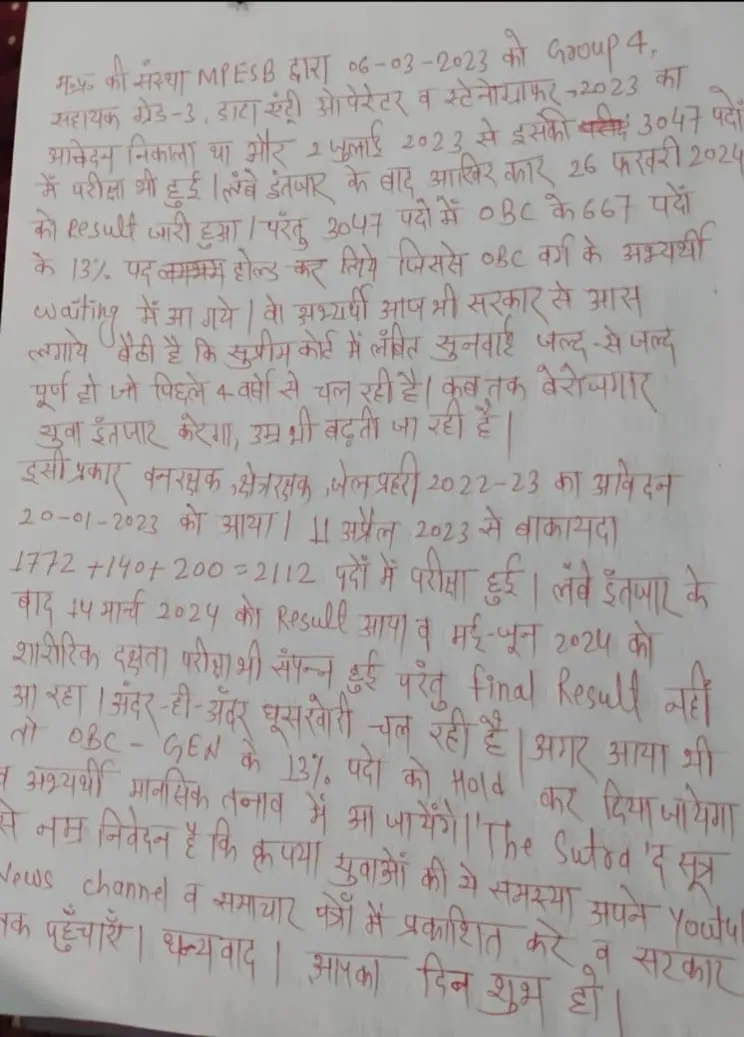 म.प्र. की संस्था MPESB द्वारा 06-03-2023 को Group 4,
सहायक ग्रेड-3, डाटा एंट्री ओपेरेटर व स्टेनोग्राफर, 2023 का
आवेदन निकाला था और 2 जुलाई 2023 से इसकी 3047 पदों
में परीक्षा भी हुई। लंबे इंतजार के बाद आखिर कार 26 फरवरी 2024
को Result जारी हुआ। परंतु 3047 पदो में OBC के 667 पदों
के 13% पद होल्ड कर लिये जिससे OBC वर्ग के अभ्यर्थी
waiting में आ गये। वो अभ्यर्थी आज भी सरकार से आस
लगाये बैठी है कि सुप्रीम कोर्ट में लंबित सुनवाई जल्द-से-जल्द
पूर्ण हो जो पिछले 4 वर्षो से चल रही है। कब तक बेरोजगार
युवा इंतजार करेगा, उम्र भी बढ़ती जा रही है।
इसी प्रकार वनरक्षक, क्षेत्ररक्षक, जेल प्रहरी 2022-23 का आवेदन
20-01-2023 को आया। 11 अप्रैल 2023 से बाकायदा
1772+140+200=2112 पदों में परीक्षा हुई। लंबे इंतजार के
बाद 14 मार्च 2024 को Result आया व मई-जून 2024 को
शारीरिक दक्षता परीक्षा भी संपन्न हुई परंतु final Result नहीं
आ रहा। अंदर-ही-अंदर घूसखोरी चल रही है। अगर आया भी
तो OBC-GEN के 13% पदो को Hold कर दिया जायेगा
व अभ्यर्थी मानसिक तनाव में आ जायेंगे। 'The Sutra' द सूत्र
से नम्र निवेदन है कि कृपया युवाओं की ये समस्या अपने Youtu
News channel व समाचार पत्रों में प्रकाशित करे व सरकार
तक पहुँचाएँ। धन्यवाद। आपका दिन शुभ हो।